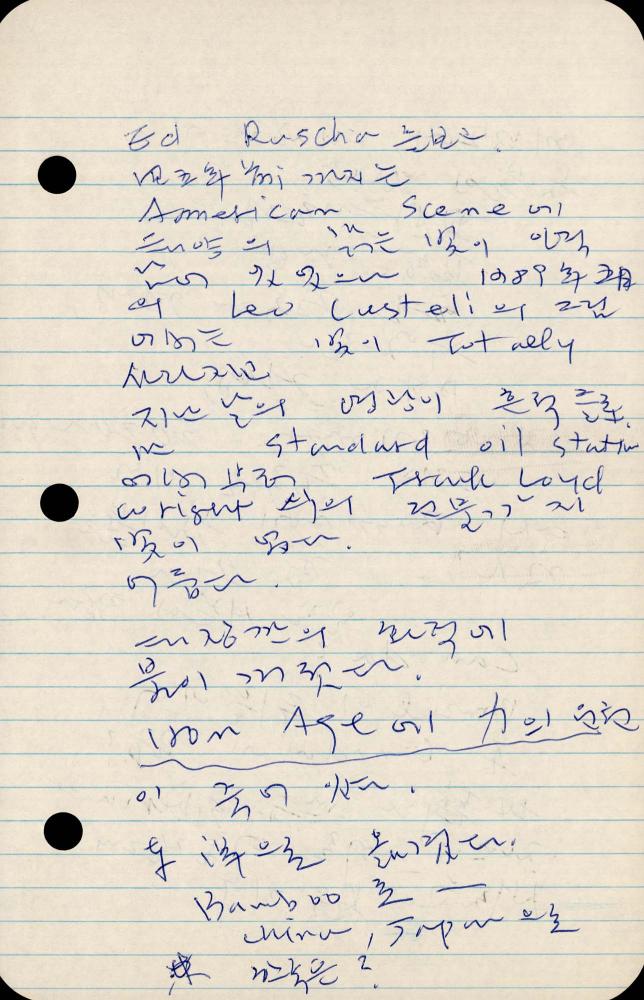 Ed Ruscha 를보면.
까지는
American Scene에
태양의 맑은 빛이 아직
남어 있었으나 1989年 3月
의 Leo Custeli의 그림
에는 빛이 Totally
사라지고
지난날의 영광이 흔적으로.
Standard oil station
에서 부터 Frank Loyd
wright 식의 건물까지
빛이 없다.
어둡다.
대장간의 화덕에
불이 꺼졌다.
Iron Age에 力의 원천
이 죽어 있다.
동양으로 옮겨졌다.
Bamboo로 —
China, Japan으로
한국은?